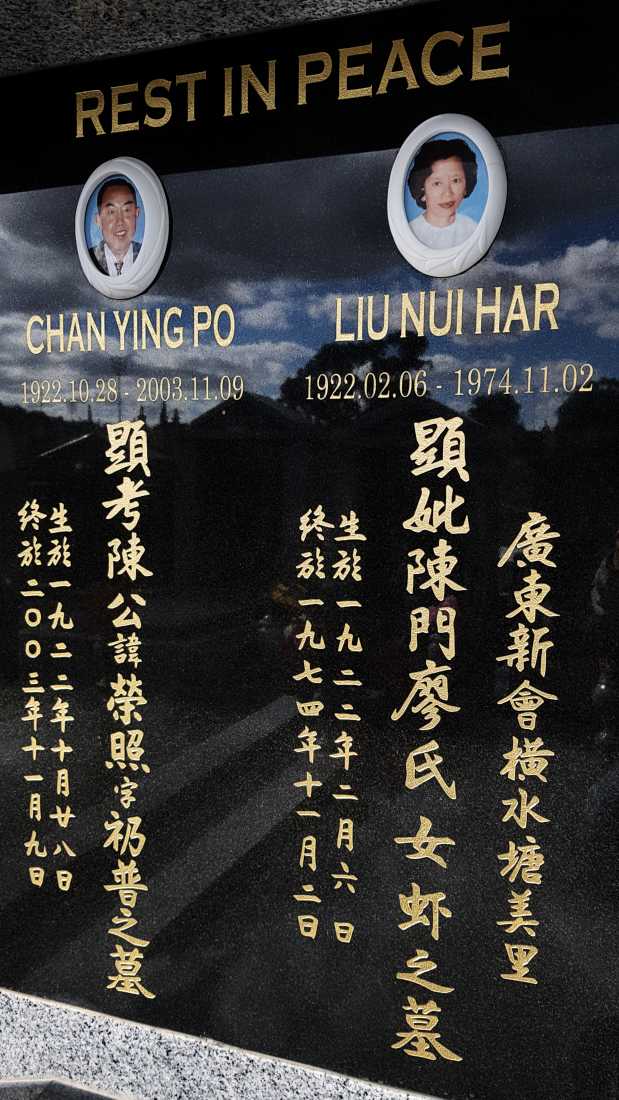 REST IN PEACE
CHAN YING PO
LIU NUI HAR
1922.10.28 - 2003.11.09
1922.02.06 - 1974.11.02
廣東新會橫水塘美里
顕妣陳門廖氏女虾之墓
生於一九二二年二月六日
終於一九七四年十一月二日
顕考陳公諱榮照字礽普之墓
生於一九二二年十月廿八日
終於二００三年十一月九日